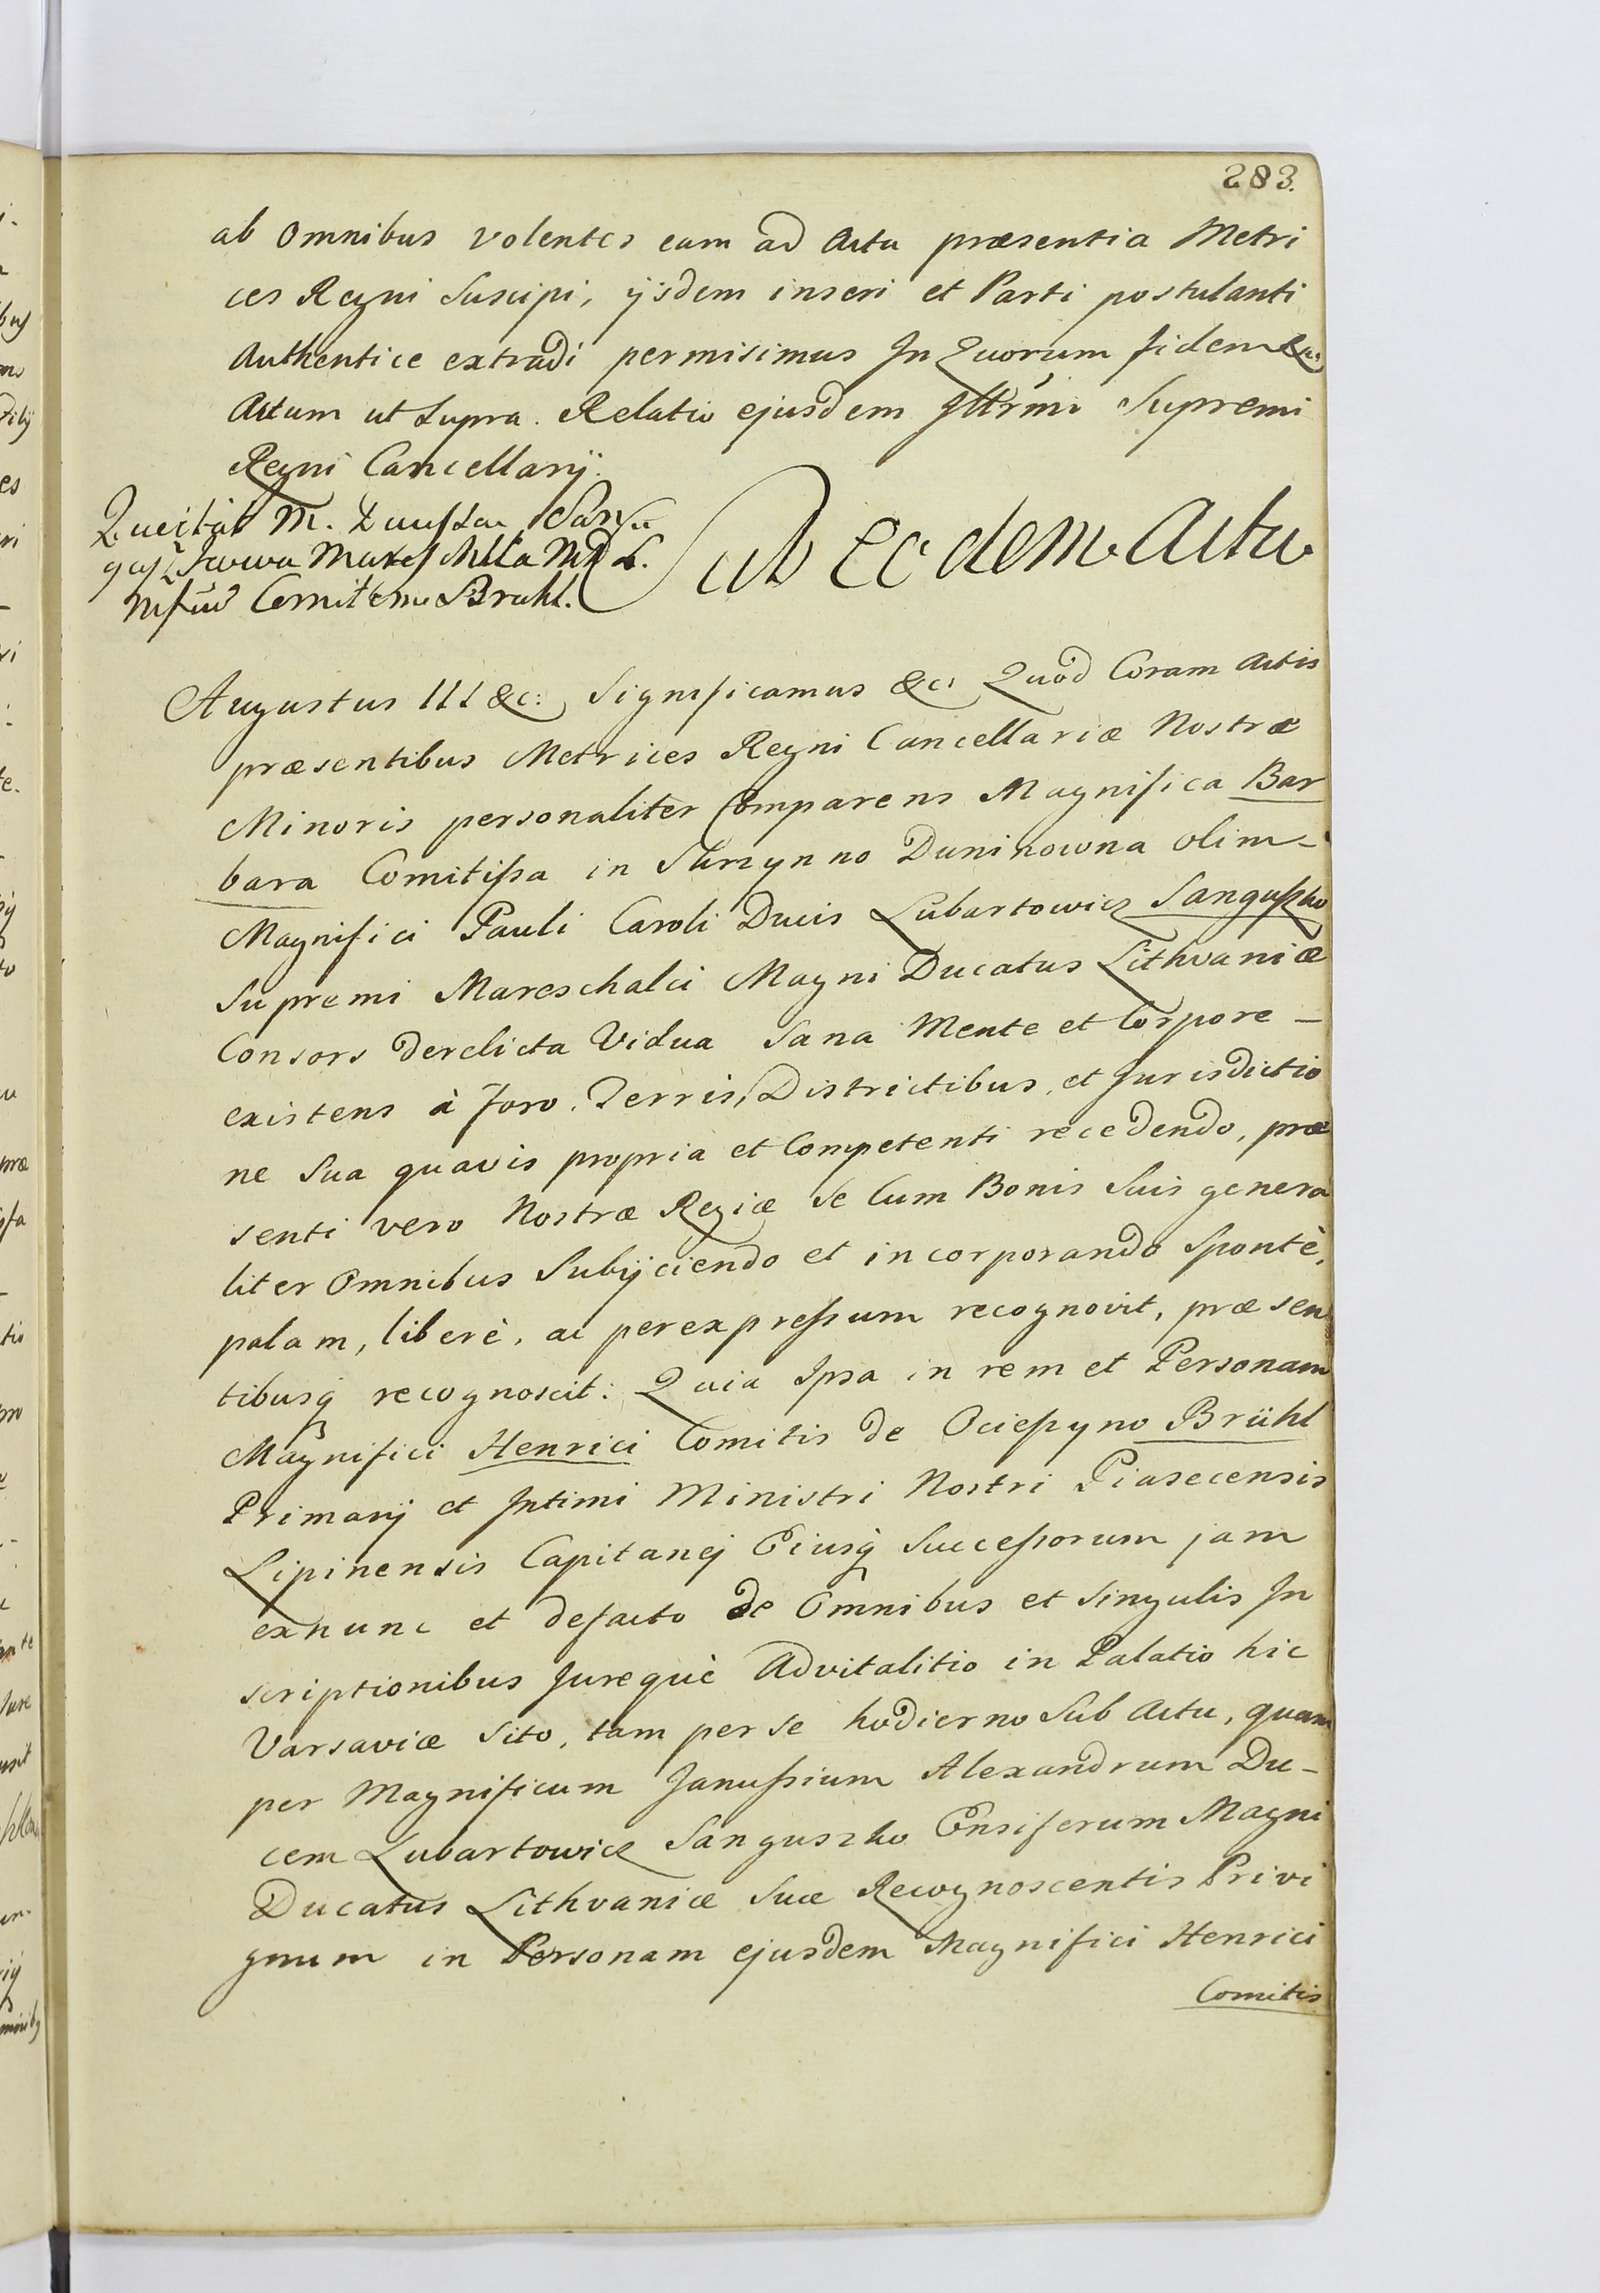 283.
ab Omnibus volentes eam ad Acta præsentia Metri
ces Regni Suscipi, ijsdem inseri et Parti postulanti
Authentice extradi permisimus In Quorum fidem &c:
Actum ut Supra. Relatio ejusdem Illrmi Supremi
Regni Cancellarij.
Quietat M. Ducissa San
M. D. L.
Comitem Brühl.
Sub Eodem Actu
Augustus III &c: Significamus &c: Quod Coram Actis
præsentibus Metrices Regni Cancellariæ Nostræ
Minoris personaliter Comparens Magnifica Bar
bara Comitißa in Skrzynno Duninowna olim -
Magnifici Pauli Caroli Ducis Lubartowicz Sanguszko
Supremi Mareschalci Magni Ducatus Lithvaniæ
Consors derelicta Vidua Sana Mente et Corpore -
existens à Foro, Terris, Districtibus, et Jurisdictio
ne Sua quavis propria et Competenti recedendo, præ
senti vero Nostræ Regiæ Se Cum Bonis Suis genera
liter Omnibus Subijciendo et incorporando Spontè,
palam, liberè, ac per expreßum recognovit, præsen
tibusq recognoscit: Quia Ipsa in rem et Personam
Magnifici Henrici Comitis de Ocießyno Brühl
Primarij et Intimi Ministri Nostri Piasecensis
Lipinensis Capitanej Eiusq Succeßorum jam
exnunc et defacto de Omnibus et Singulis In
scriptionibus Jurequè Advitalitio in Palatio hic
Varsaviæ Sito, tam per se hodierno Sub Actu, quam
per Magnificum Janußium Alexandrum Du-
cem Lubartowicz Sanguszko Ensiferum Magni
Ducatus Lithvaniæ Suæ Recognoscentis Privi
gnum in Personam ejusdem Magnifici Henrici
Comitis